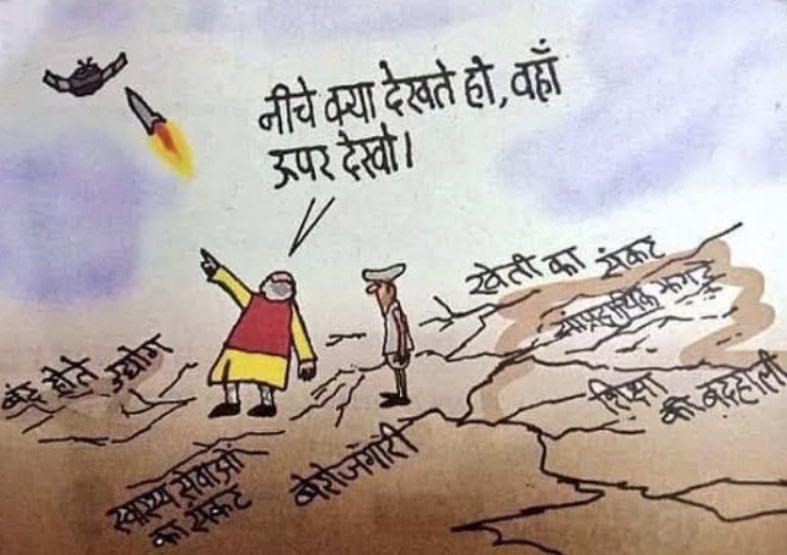 नीचे क्या देखते हो, वहाँ
ऊपर देखो।
खेती का संकट
सांप्रदायिक झगड़े
बंद होते उद्योग
शिक्षा
की बदहाली
बेरोजगारी
स्वास्थ्य सेवाओं
का संकट